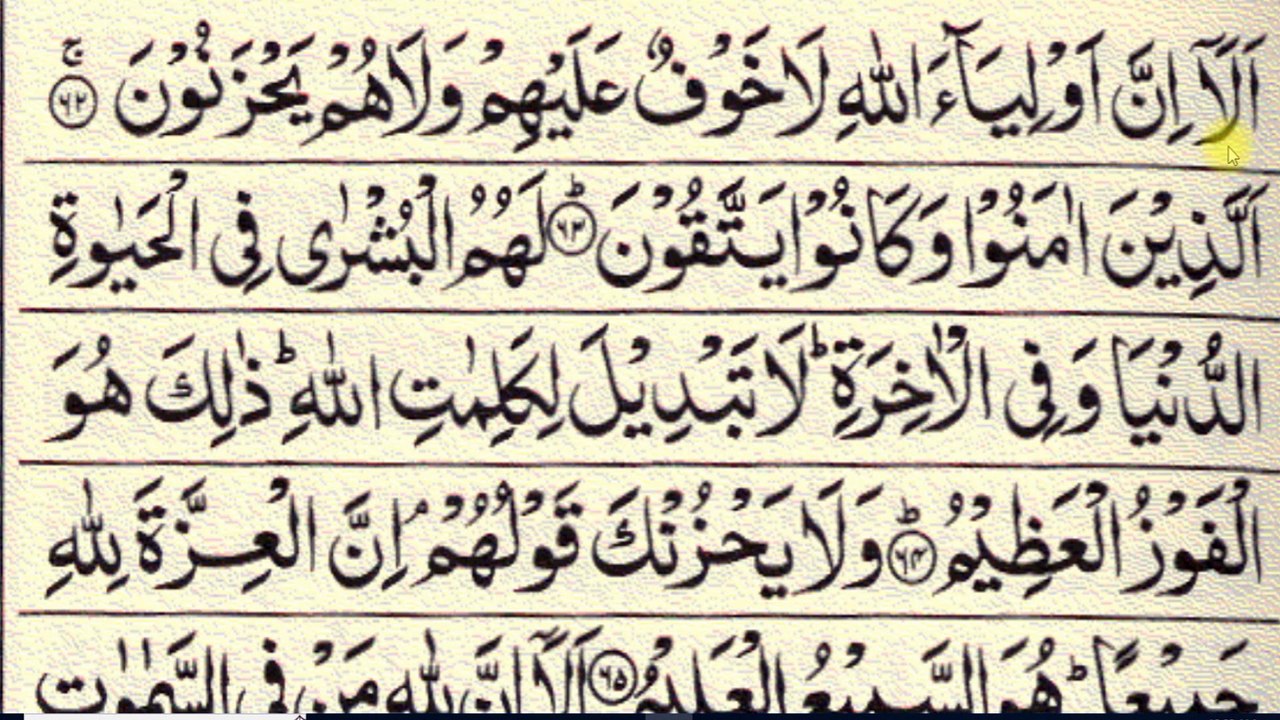 اَلَاۤ اِنَّ اَوْلِيَآءَ اللّٰهِ لَا خَوْفٌ عَلَيْهِمْ وَلَا هُمْ يَحْزَنُوْنَ ۚ ﴿۶۲﴾
اَلَّذِيْنَ اٰمَنُوْا وَكَانُوْا يَتَّقُوْنَ ؕ ﴿۶۳﴾ لَهُمُ الْبُشْرٰى فِى الْحَيٰوةِ
الدُّنْيَا وَفِى الْاٰخِرَةِ ؕ لَا تَبْدِيْلَ لِكَلِمٰتِ اللّٰهِ ؕ ذٰلِكَ هُوَ
الْفَوْزُ الْعَظِيْمُ ؕ ﴿۶۴﴾ وَلَا يَحْزُنْكَ قَوْلُهُمْ ۘ اِنَّ الْعِزَّةَ لِلّٰهِ
جَمِيْعًا ؕ هُوَ السَّمِيْعُ الْعَلِيْمُ ﴿۶۵﴾ اَلَاۤ اِنَّ لِلّٰهِ مَنْ فِى السَّمٰوٰتِ